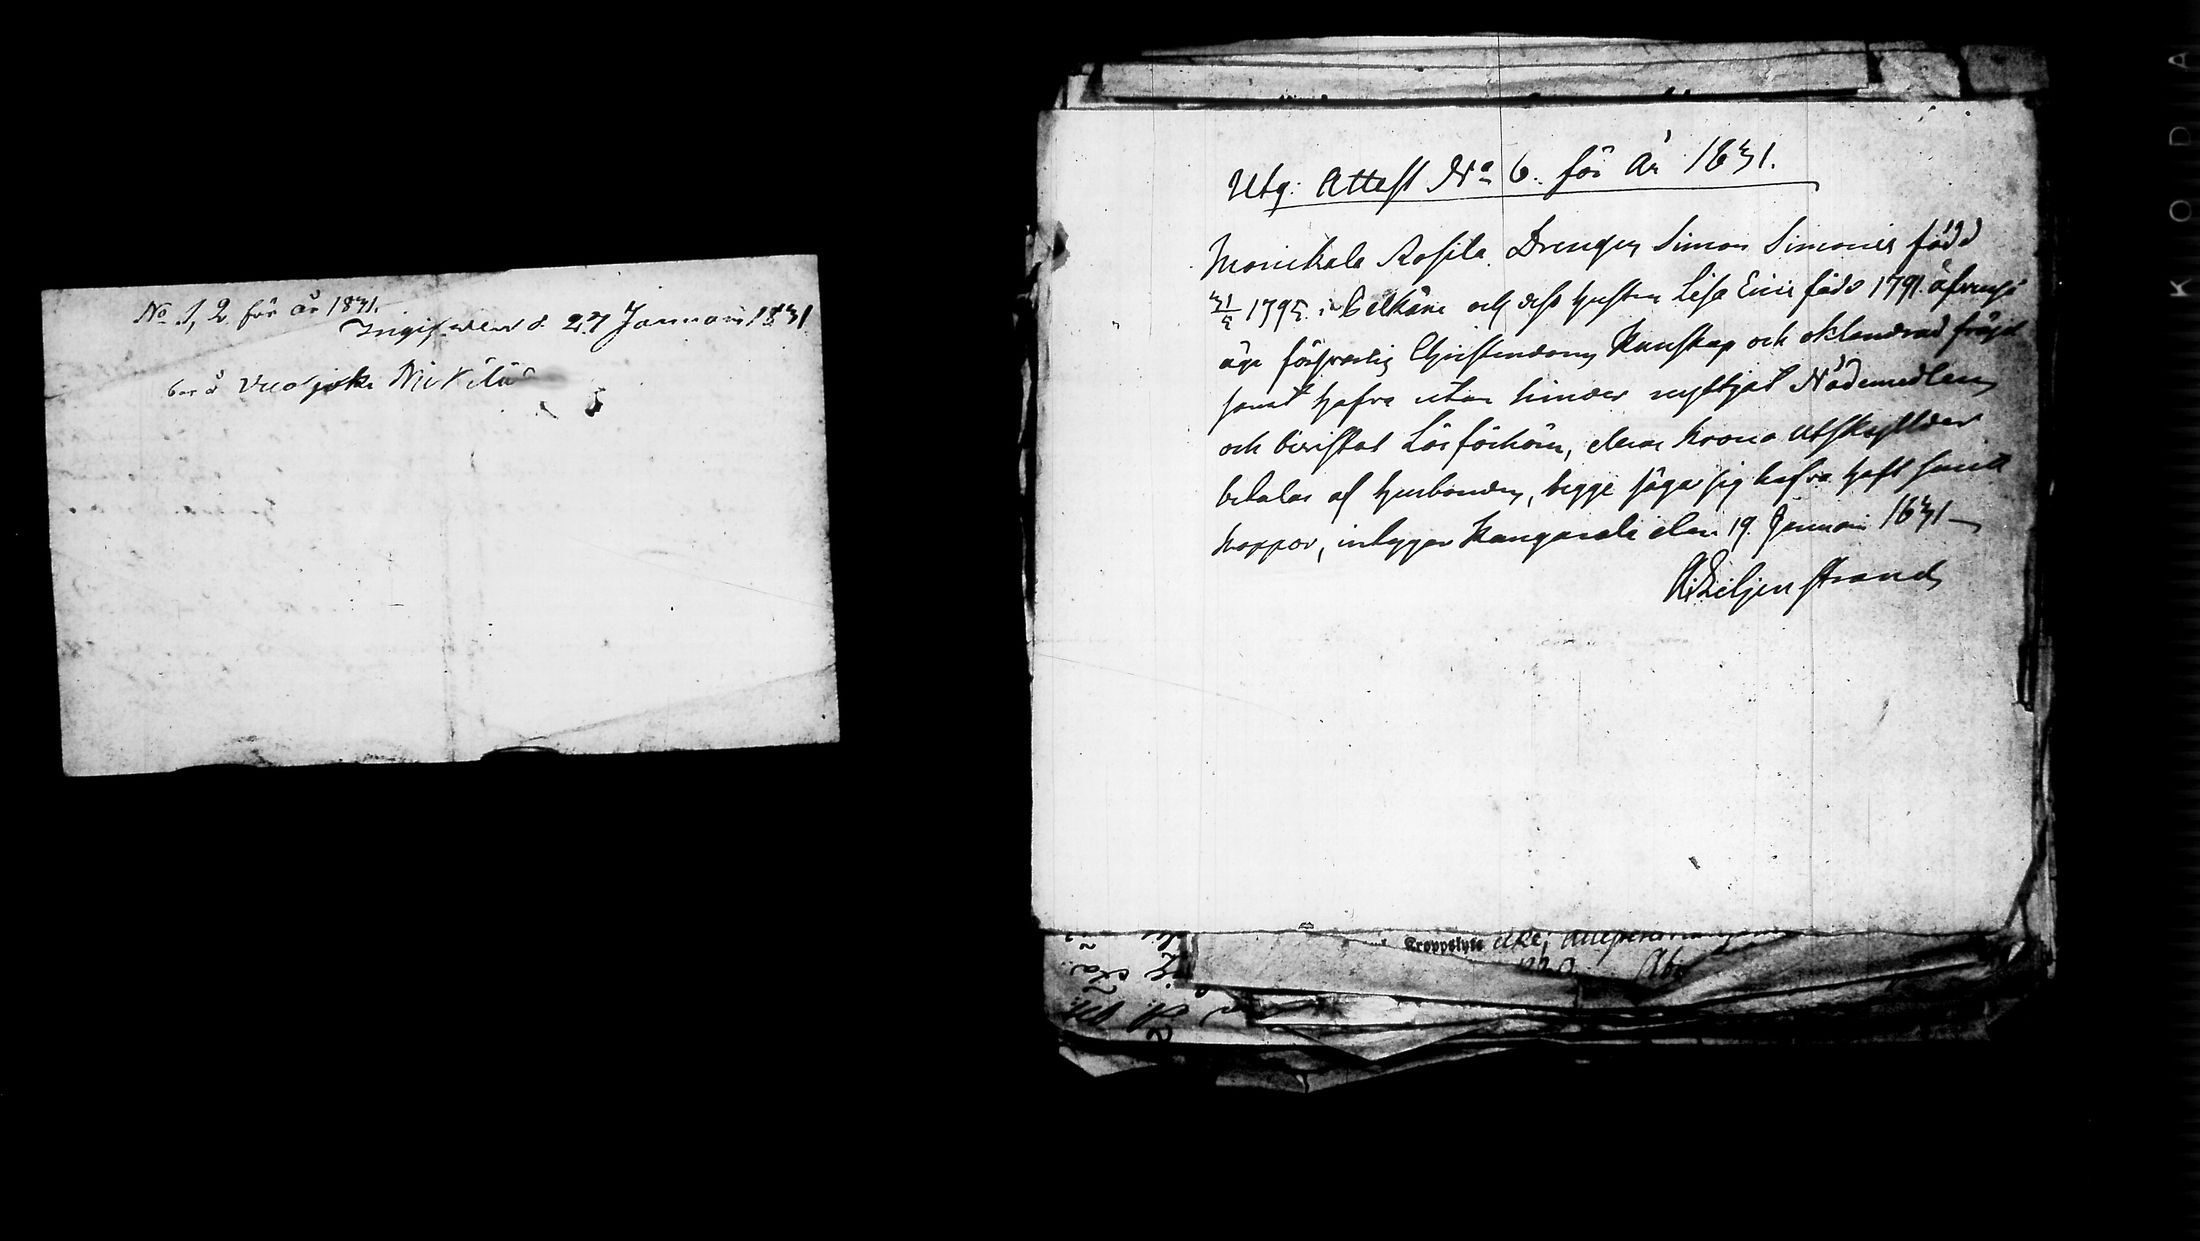 No 1, 2 för år 1831.
Ingifven d. 27 Januari 1831
bor å Vuolijoki Mikkilä
Utg: Attest No 6. för år 1831.
Monikala Rosila. Drengen Simon Simonss född
31/5 1795. i Pelkäne och dess hustru Lisa Ericsd född 1791. äfvenså
äga försvarlig Christendoms Kunskap och oklandrad fräjd
samt hafva utan hinder nyttjat Nådemedlen
och bevistat Läsförhören, deras krono utskyllder
betalas af husbonden, begge säga sig hafva haft
koppor, intygar Kangasala den 19. Januari 1831
Liljenstrand
Kroppslyte
KODA